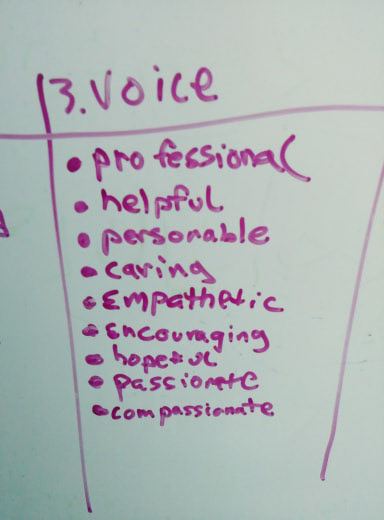 3. Voice
• professional
• helpful
• personable
• caring
• Empathetic
• Encouraging
• hopeful
• passionate
• compassionate